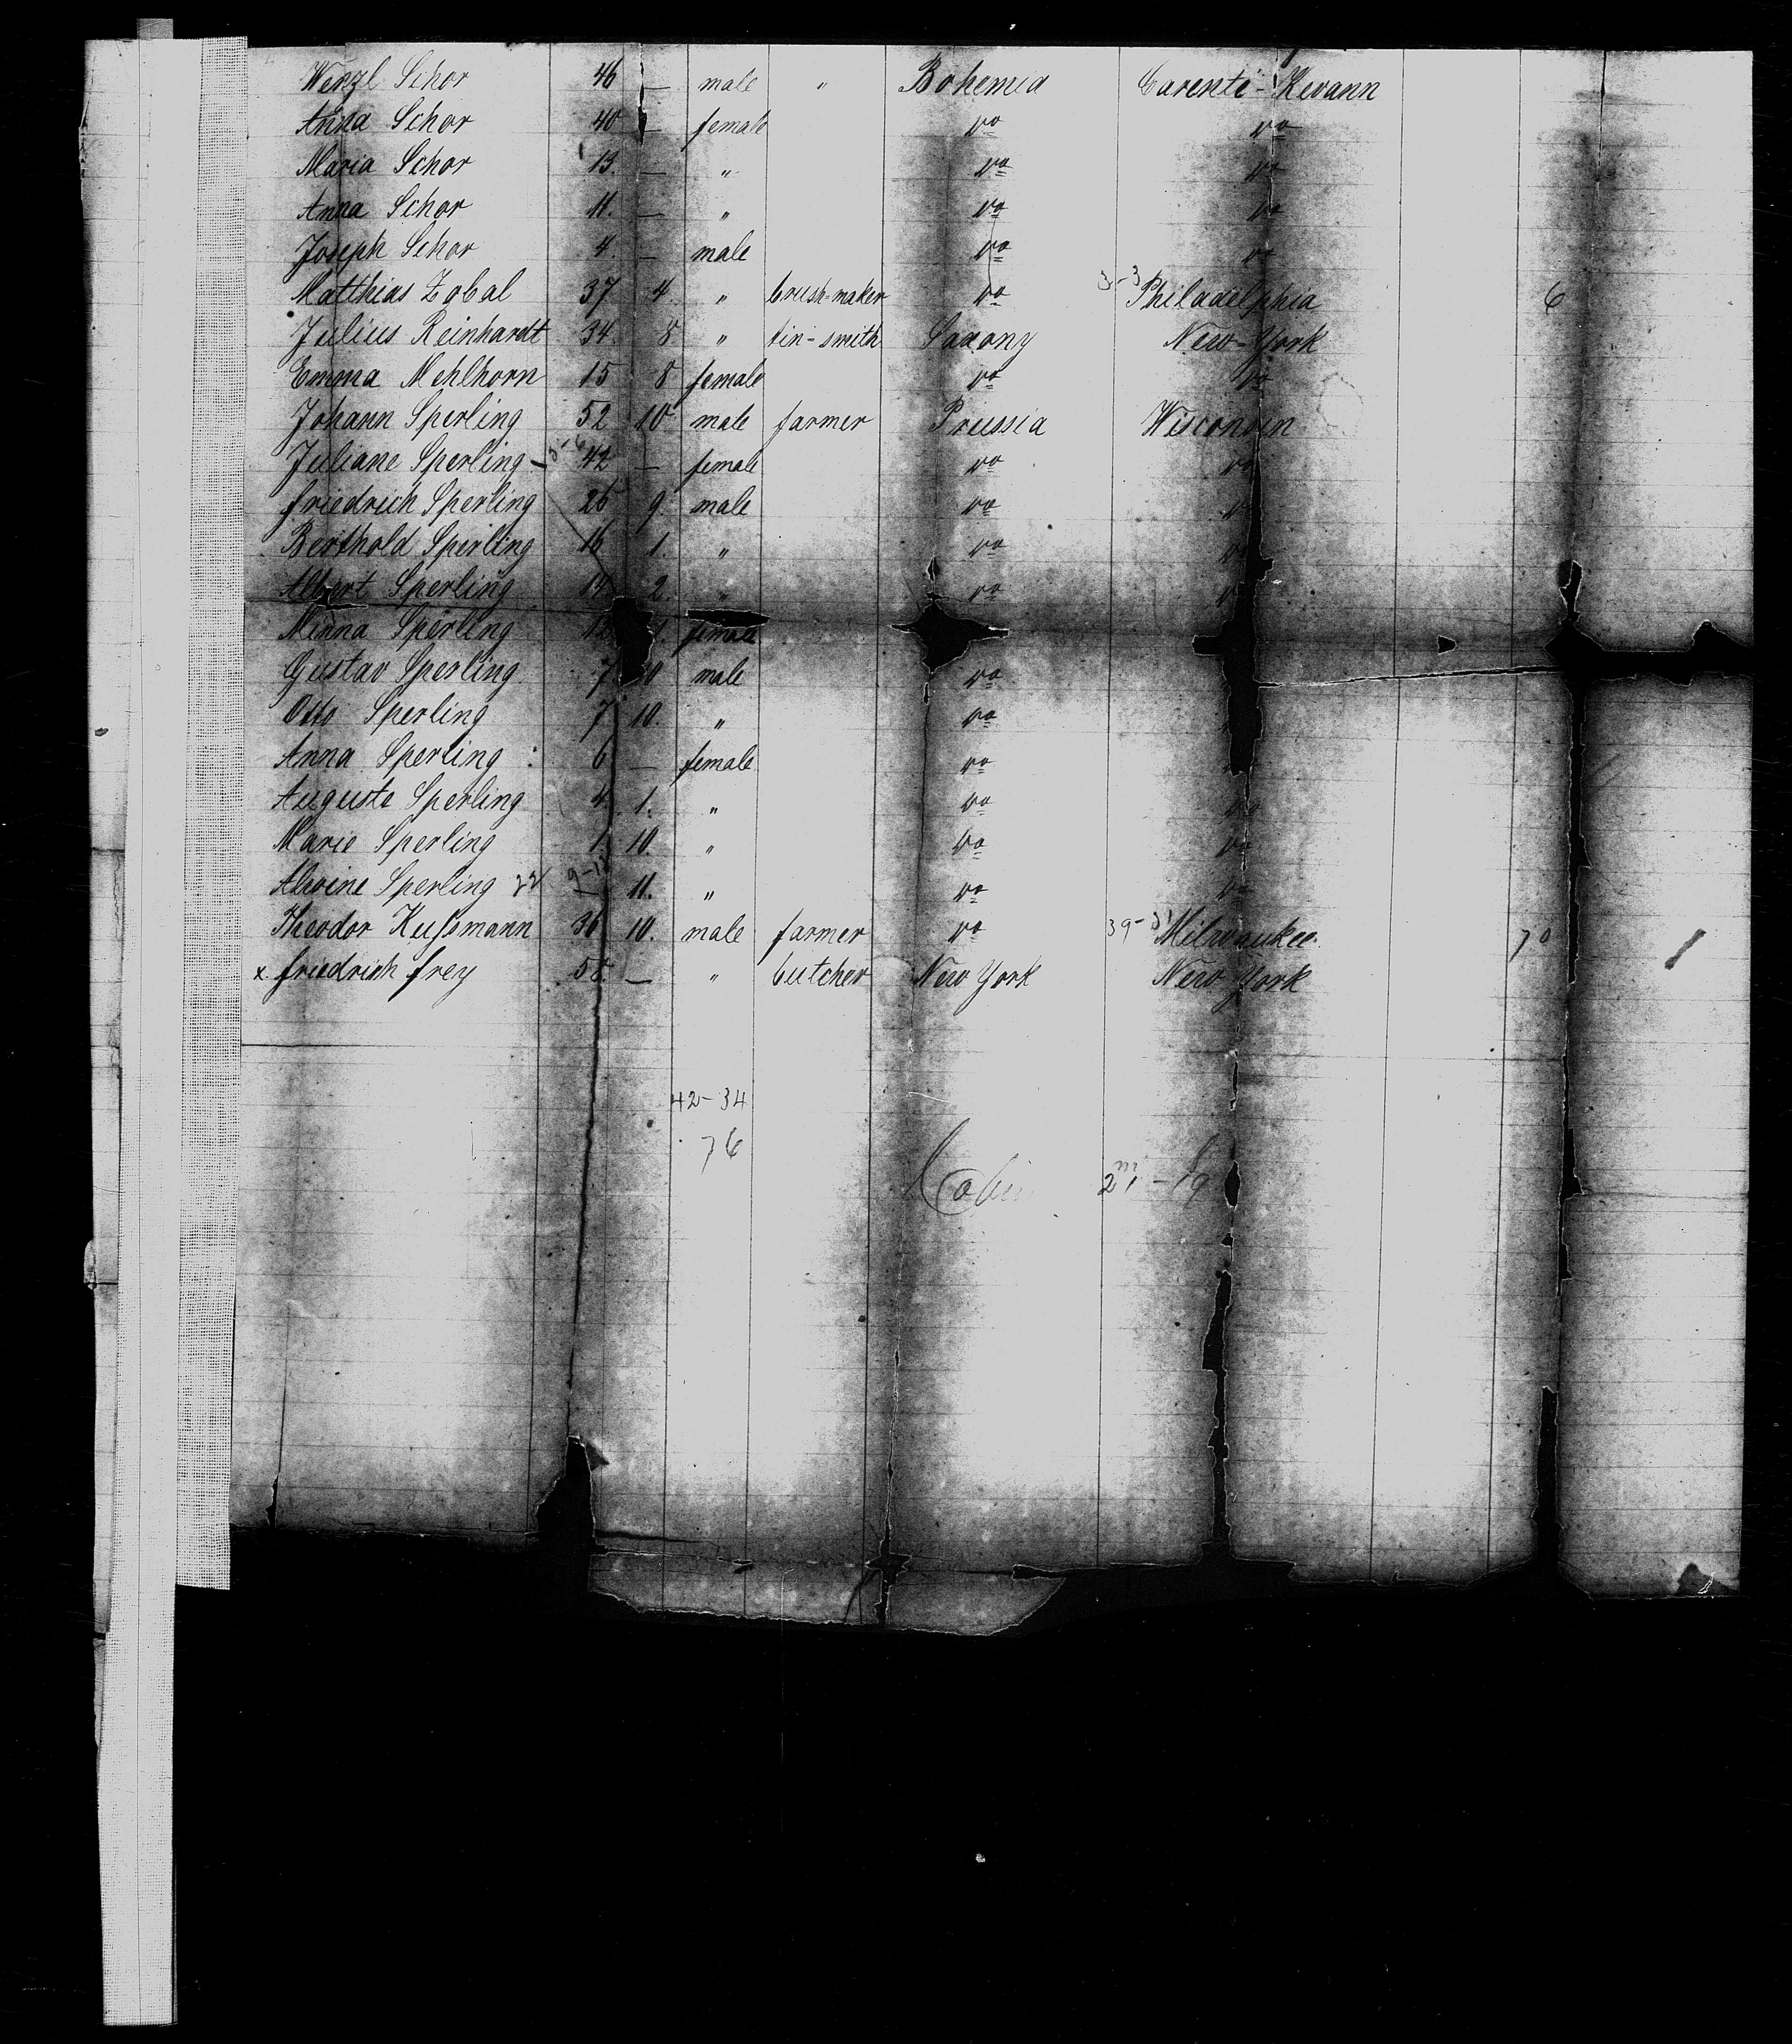 Wenzl Schor 46 — male " Bohemia Carenti - Kewann
Anna Schor 40 — female do do
Maria Schor 13. — " do do
Anna Schor 11. — " do do
Joseph Schor 4. — male do do
Matthias Zobal 37 4. " brush-maker do 3-3 Philadelphia 6
Julius Reinhardt 34. 8 " tin-smith Saxony New-York
Emma Mehlhorn 15 8 female do do
Johann Sperling 52 10 male farmer Prussia Wisconsin
Juliane Sperling 42 — female do do
Friedrich Sperling 26 9. male do do
Berthold Sperling 16 1. " do do
Albert Sperling 14 2. " do
Minna Sperling 12 1. female
Gustav Sperling 7 10 male do
Otto Sperling 7 10. " do
Anna Sperling 6 — female do
Auguste Sperling 4 1. " do do
Marie Sperling 1 10. " do do
Alwine Sperling 22 9-13 11. " do do
Theodor Kußmann 36 10. male farmer do 39-31 Milwaukee. 70
x Friedrich Frey 58. — " butcher New York New York
42-34
76
Cabin